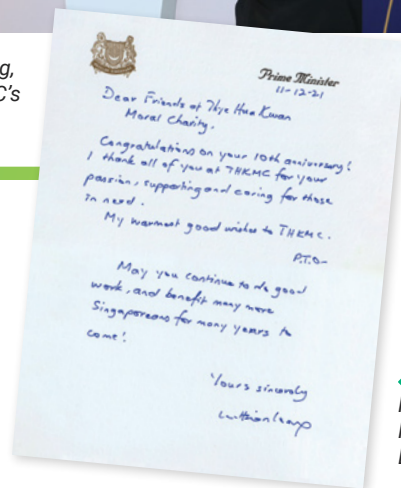 g,
C's
Prime Minister
11-12-21
Dear Friends at Thye Hua Kwan
Moral Charity.
Congratulations on your 10th anniversary!
I thank all of you at THKMC for your
passion, supporting and caring for those
in need.
My warmest good wishes to THKMC.
P.T.O-
May you continue to do good
work, and benefit many more
Singaporeans for many years to
come!
Yours sincerely